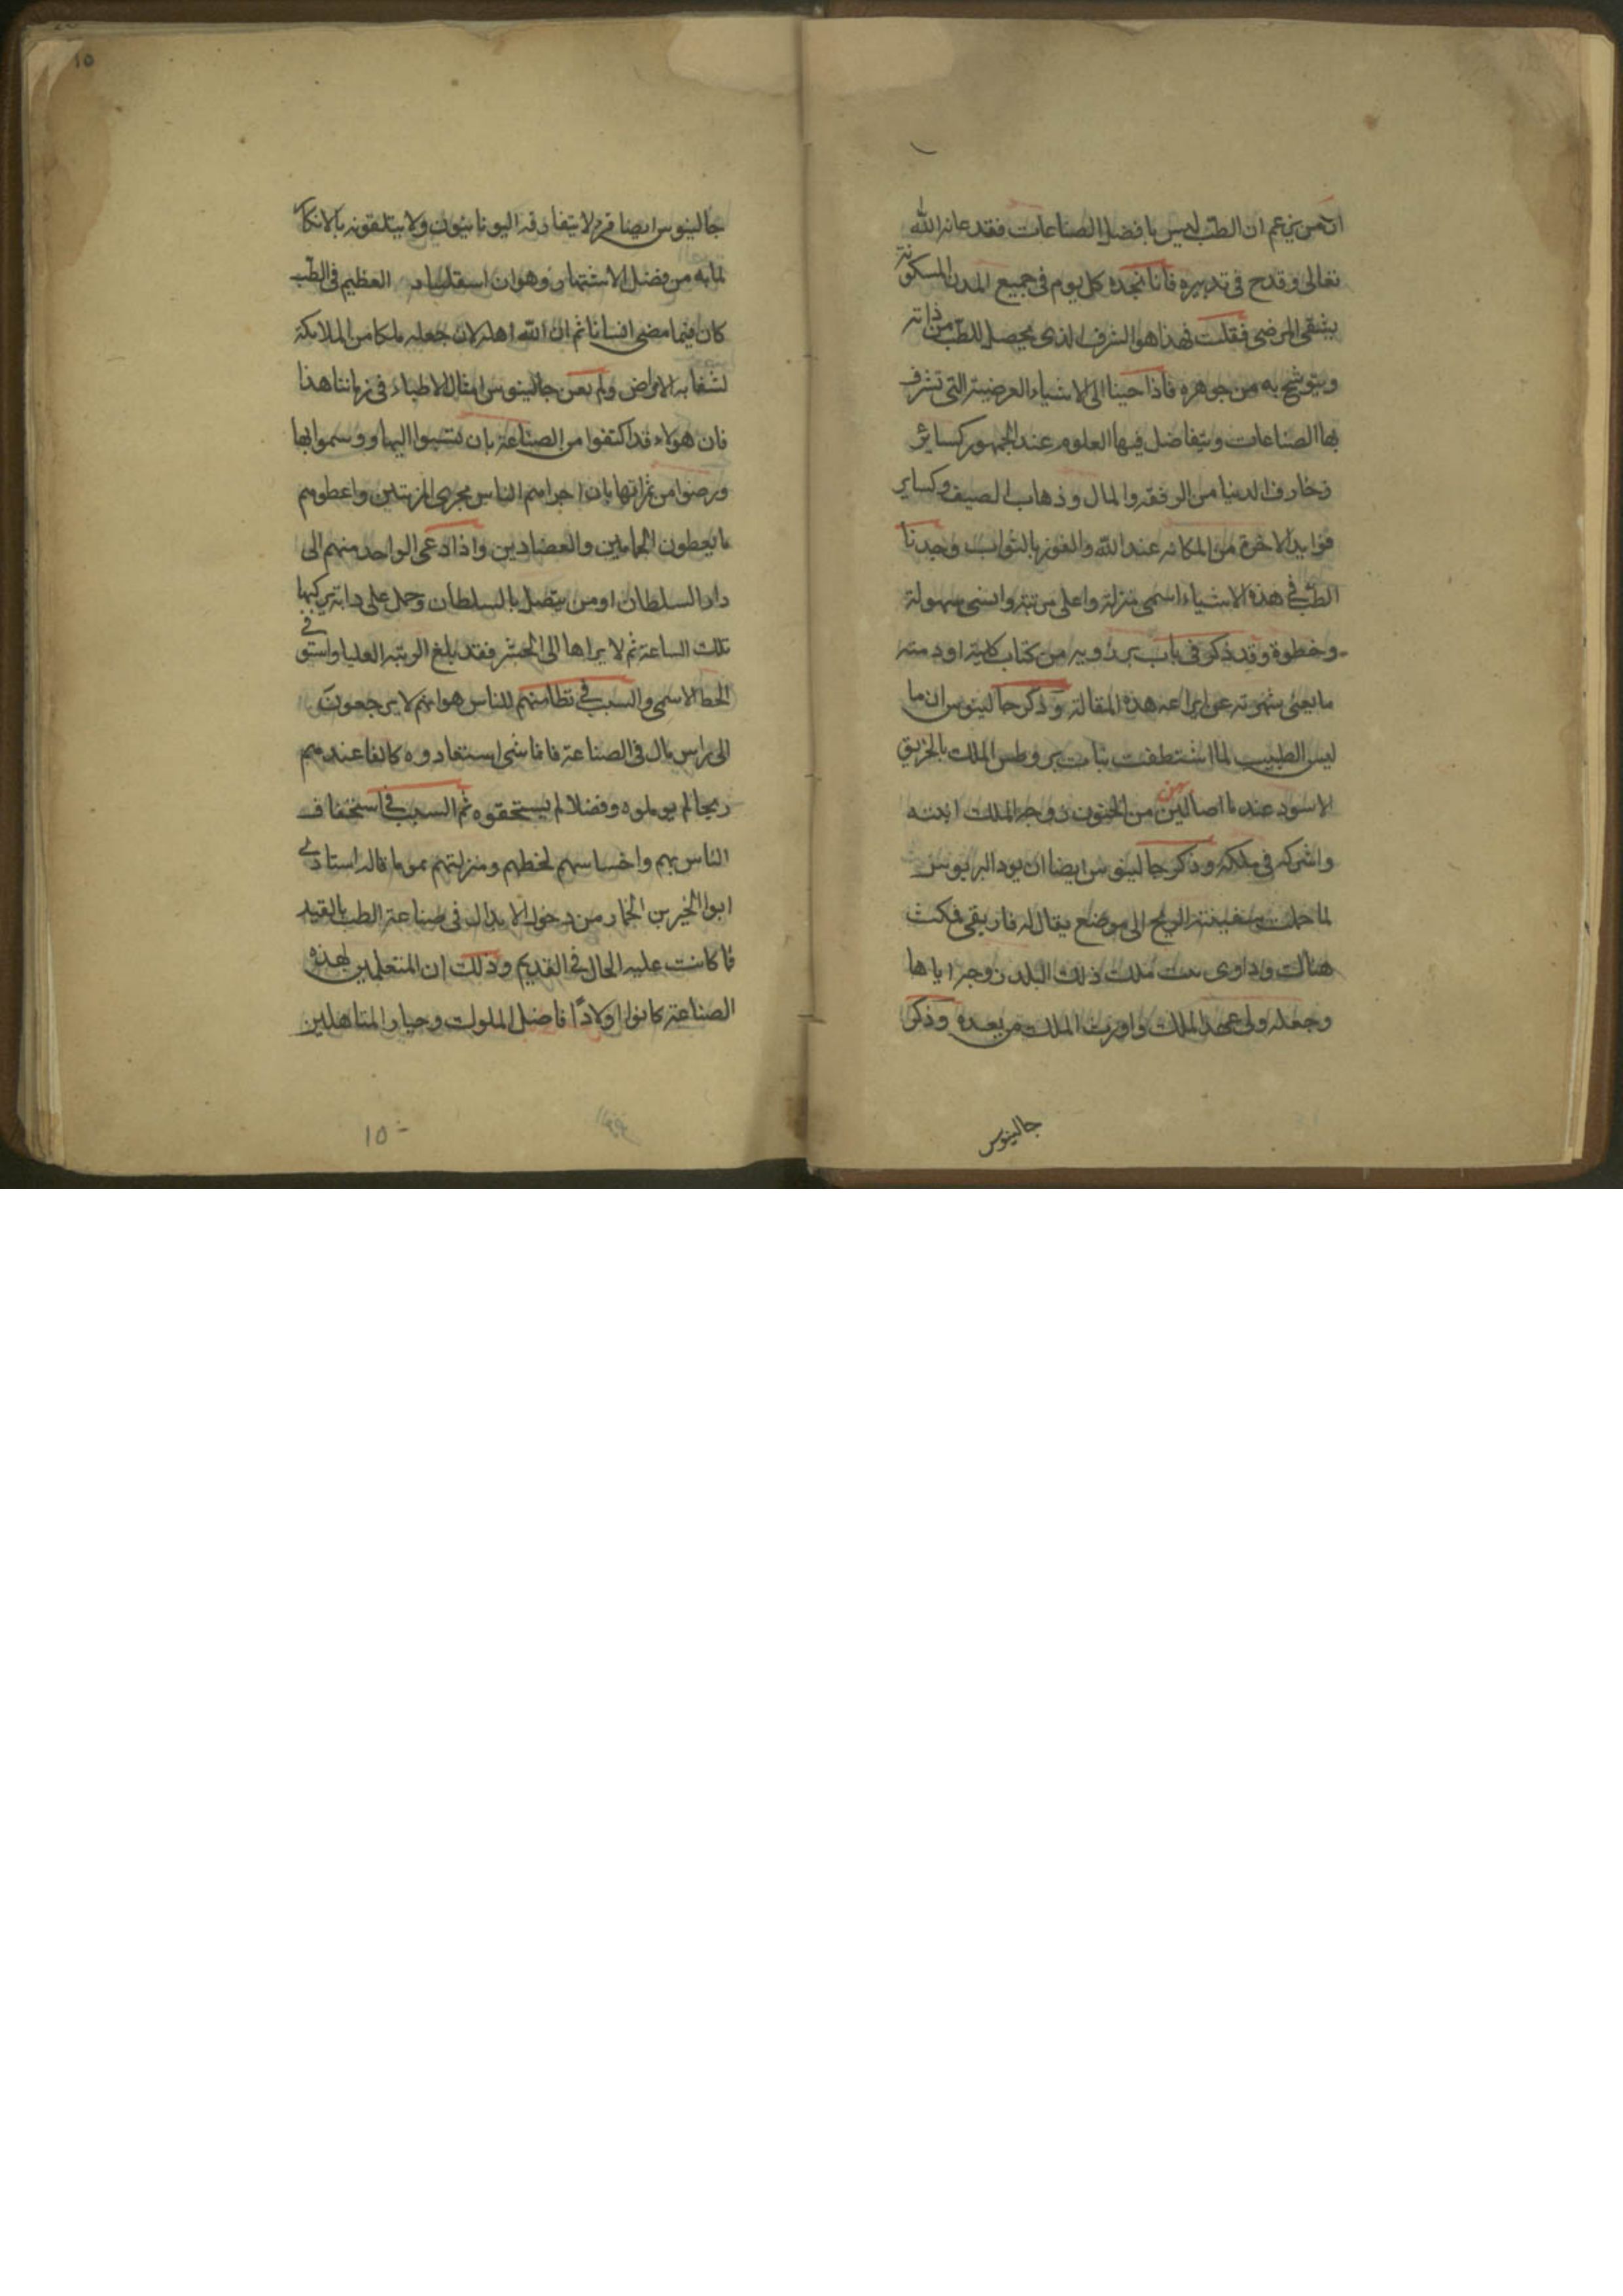 ان من يزعم ان الطب ليس بافضل الصناعات فقد عاند الله
تعالى وقدح في تدبيره فانا نجده كل يوم في جميع المدن المسكونة
يشفي المرضى فقلت فهذا هو الشرف الذي يحصل للطب من ذاته
ويتوشح به من جوهره فاذا جينا الى الاشياء العرضية التي تشرف
بها الصناعات ويتفاضل فيها العلوم عند الجمهور كساير
زخارف الدنيا من الرفقه والمال وذهاب الصيف وكساير
فوايد الاخرة من المكانه عند الله والفوز بالثواب وجدنا
الطب في هذه الاشياء اسمى منزلة واعلى مرتبة واسنى سهولة
وخطوة وقد ذكر في باب برزويه من كتاب كليلة ودمنه
ما يغني شهرته عن ايراعه هذه المقالة وذكر جالينوس ان ما
ليس الطبيب لما اشتطفت بنات بروطس الملك بالخربق
الاسود عندما اصابهن من الجنون زوجه الملك ابنته
واشركه في ملكه وذكر جالينوس ايضا ان بودالبريوس
لما حملت سفينته الريح الى موضع يقال له فاريقي فمكث
هنالك وداوى بنت ملك ذلك البلد زوجه اياها
وجعله ولي عهد الملك واورث الملك من بعده وذكر
جالينوس
١٥
جالينوس ايضا قولا يتفارقه اليونانيون ولا يتلقونه بالانكار
لما به من فضل الاشتهار وهو ان اسقلبيادس العظيم في الطب
كان فيما مضى انسانا ثم ان الله اهله لان جعله ملكا من الملايكة
لشفايه الامراض ولم يعن جالينوس امثال الاطباء في زماننا هذا
فان هولاء قد اكتفوا من الصناعة بان نتسبوا اليها ووسموا بها
ورضوا من ثمراتها بان اجراهم الناس مجرى المزينين واعطوهم
ما يعطون الحجامين والفصادين واذا دعي الواحد منهم الى
دار السلطان او من يتصل بالسلطان وحمل على دابة يركبها
تلك الساعة ثم لا يراها الى الحشر فقد بلغ الرتبه العليا واستوفى
الحظ الاسمى والسبب في تظلمهم للناس هو انهم لا يرجعون
الى راس مال في الصناعة فاما شي استفادوه كالفا عندهم
ربحا لم يوملوه وفضلا لم يستحقوه ثم السبب في استخفاف
الناس بهم واخساسهم لحظهم ومنزلتهم هو ما قاله استاذي
ابوا الخير بن الخمار من دخول الابدال في صناعة الطب بالقيد
فا كانت عليه الحال في القديم وذلك ان المتعلمين لهذه
الصناعة كانوا اولادا فاضل الملوك وخيار المتاهلين
١٥